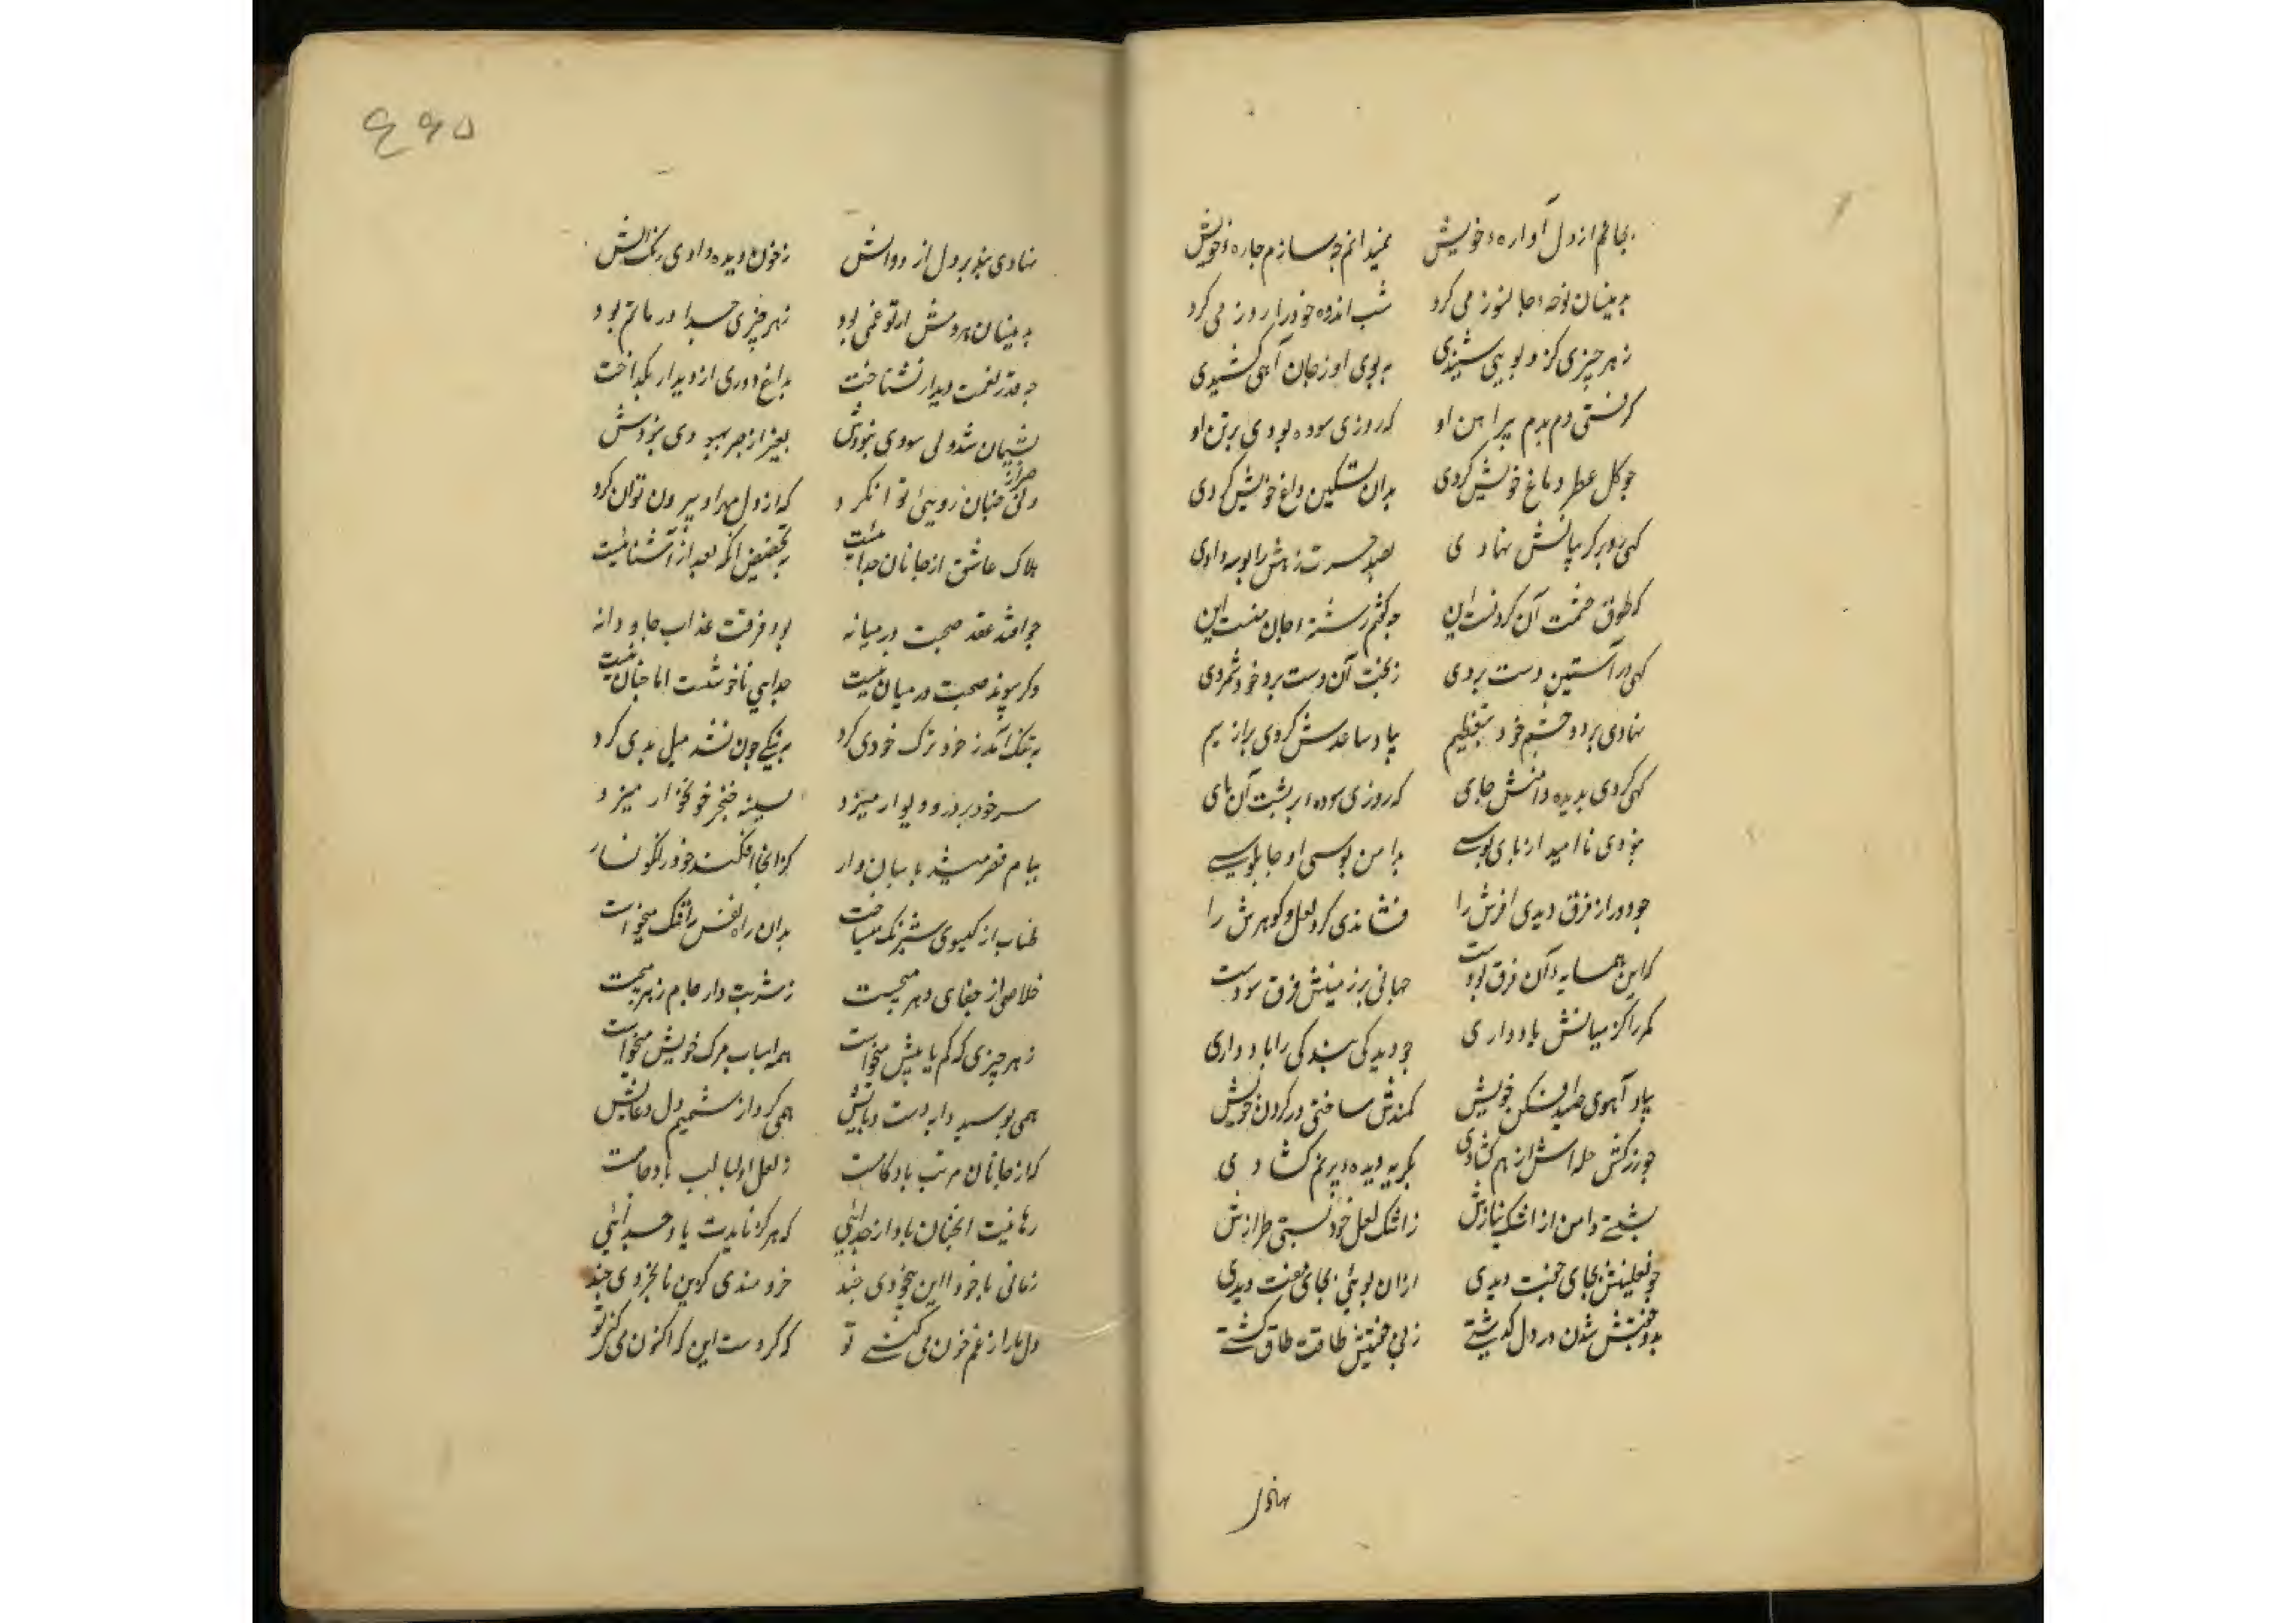 بجانم از دل آواره خویش نمیدانم چه سازم چاره خویش
بدینسان نوحه جانسوز می کرد شب اندوه خود را روز می کرد
ز هر چیزی کزو بویی شنیدی به بوی او ز جان آهی کشیدی
کرفتی دم بدم پیراهن او که روزی سوده بودی بر تن او
چو کل عطر دماغ خویش کردی بدان تسکین داغ خویش کردی
کهی رو بر کریبانش نهادی بصد حسرت زهش را بوسه دادی
که طوق حشمت آن کردنست این چه کفتم رشته جان منست این
کهی در آستین دست بردی ز بخت آن دست برد خود شمردی
نهادی بر دو چشم خود بتعظیم بیاد ساعدش کردی پر از سیم
کهی کردی بدیده دامنش جای که روزی سوده بر پشت آن پای
نبودی ناامید از پای بوسی بدامن بوسی او چابلوسی
چو دور از فرق دیدی افسرش را فشاندی کرد لعل و کوهرش را
که این همسایه آن فرق بودست جهانی بر زمینش فرق سودست
کمر را کز میانش یاد داری چو دیدی بندکی را یاد داری
بیاد آهوی صید افکن خویش کمندش ساختی در کردن خویش
چو زرکش حله اش از هم کشادی بکریه دیده پر نم کشادی
بشستی دامن از اشک نیازش ز اشک لعل خود بستی طرازش
چو نعلینش بجای جفت دیدی
بدو جفتش شدن در دل کذشتی ز بی جفتیش طاقت طاق کشتی
نهادی
۶۶۵
نهادی بند بر دل از دوالش ز خون دیده دادی رنک آلش
بدینسان هر دمش از نو غمی بود ز هر چیزی جدا در ماتم بود
چو قدر نعمت دیدار نشناخت بداغ دوری از دیدار بکداخت
پشیمان شد ولی سودی نبودش بغیر از صبر بهبودی نبودش
ولی صبر از چنان رویی توان کرد که از دل مهر او بیرون توان کرد
هلاک عاشق از جانان جداییست بتخصیص آنکه بعد از آشناییست
چو افتد عقد صحبت در میانه بود فرقت عذاب جاودانه
وکر پیوند صحبت در میان نیست جدایی ناخوشست اما چنان نیست
به تنک آمد ز خود ترک خودی کرد به نیکی چون نشد میل بدی کرد
سر خود بر در و دیوار میزد بسینه خنجر خونخوار میزد
ببام قصر میشد پاسبان وار کز آنجا افکند خود را نکونسار
طناب از کیسوی شبرنک میساخت بدان راه نفس را تنک میخواست
خلاصی از جفای دهر میجست ز شربت دار جام زهر میجست
ز هر چیزی که کم یا بیش میخواست همه اسباب مرک خویش میخواست
همی بوسید دایه دست و پایش همی کرد از صمیم دل دعایش
که از جانان مرتب باد کامت ز لعل او لبالب باد جامت
رهانیت آنچنان باد از جدایی که هرکز نایدت یاد جدایی
زمانی با خود آ این بیخودی چند خردمندی کزین نابخردی چند
دل ما را ز غم خون می کنی تو که کردست این که اکنون می کنی تو